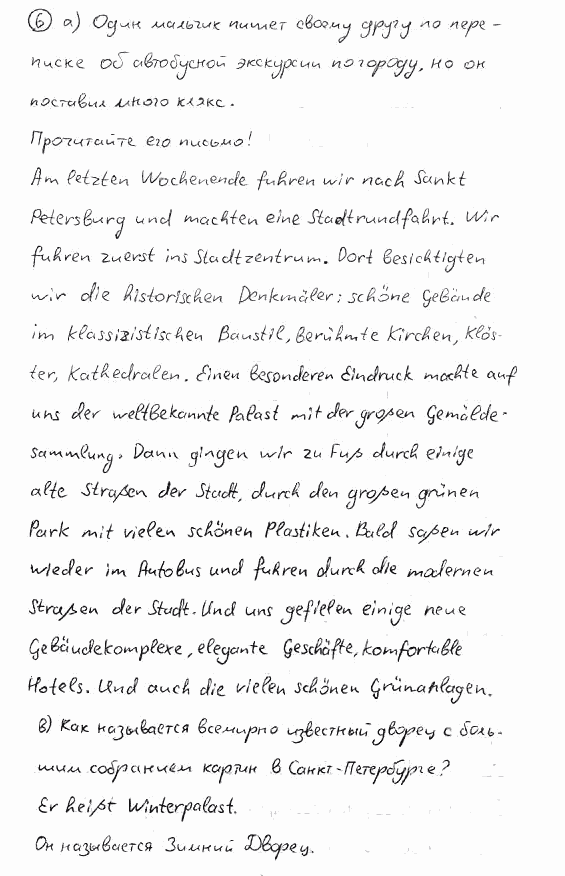 ⑥ а) Один мальчик пишет своему другу по пере-
писке об автобусной экскурсии по городу, но он
поставил много клякс.
Прочитайте его письмо!
Am letzten Wochenende fuhren wir nach Sankt
Petersburg und machten eine Stadtrundfahrt. Wir
fuhren zuerst ins Stadtzentrum. Dort besichtigten
wir die historischen Denkmäler: schöne Gebäude
im klassizistischen Baustil, berühmte Kirchen, Klös-
ter, Kathedralen. Einen besonderen Eindruck machte auf
uns der weltbekannte Palast mit der großen Gemälde-
sammlung. Dann gingen wir zu Fuß durch einige
alte Straßen der Stadt, durch den großen grünen
Park mit vielen schönen Plastiken. Bald saßen wir
wieder im Autobus und fuhren durch die modernen
Straßen der Stadt. Und uns gefielen einige neue
Gebäudekomplexe, elegante Geschäfte, komfortable
Hotels. Und auch die vielen schönen Grünanlagen.
в) Как называется всемирно известный дворец с боль-
шим собранием картин в Санкт-Петербурге?
Er heißt Winterpalast.
Он называется Зимний Дворец.